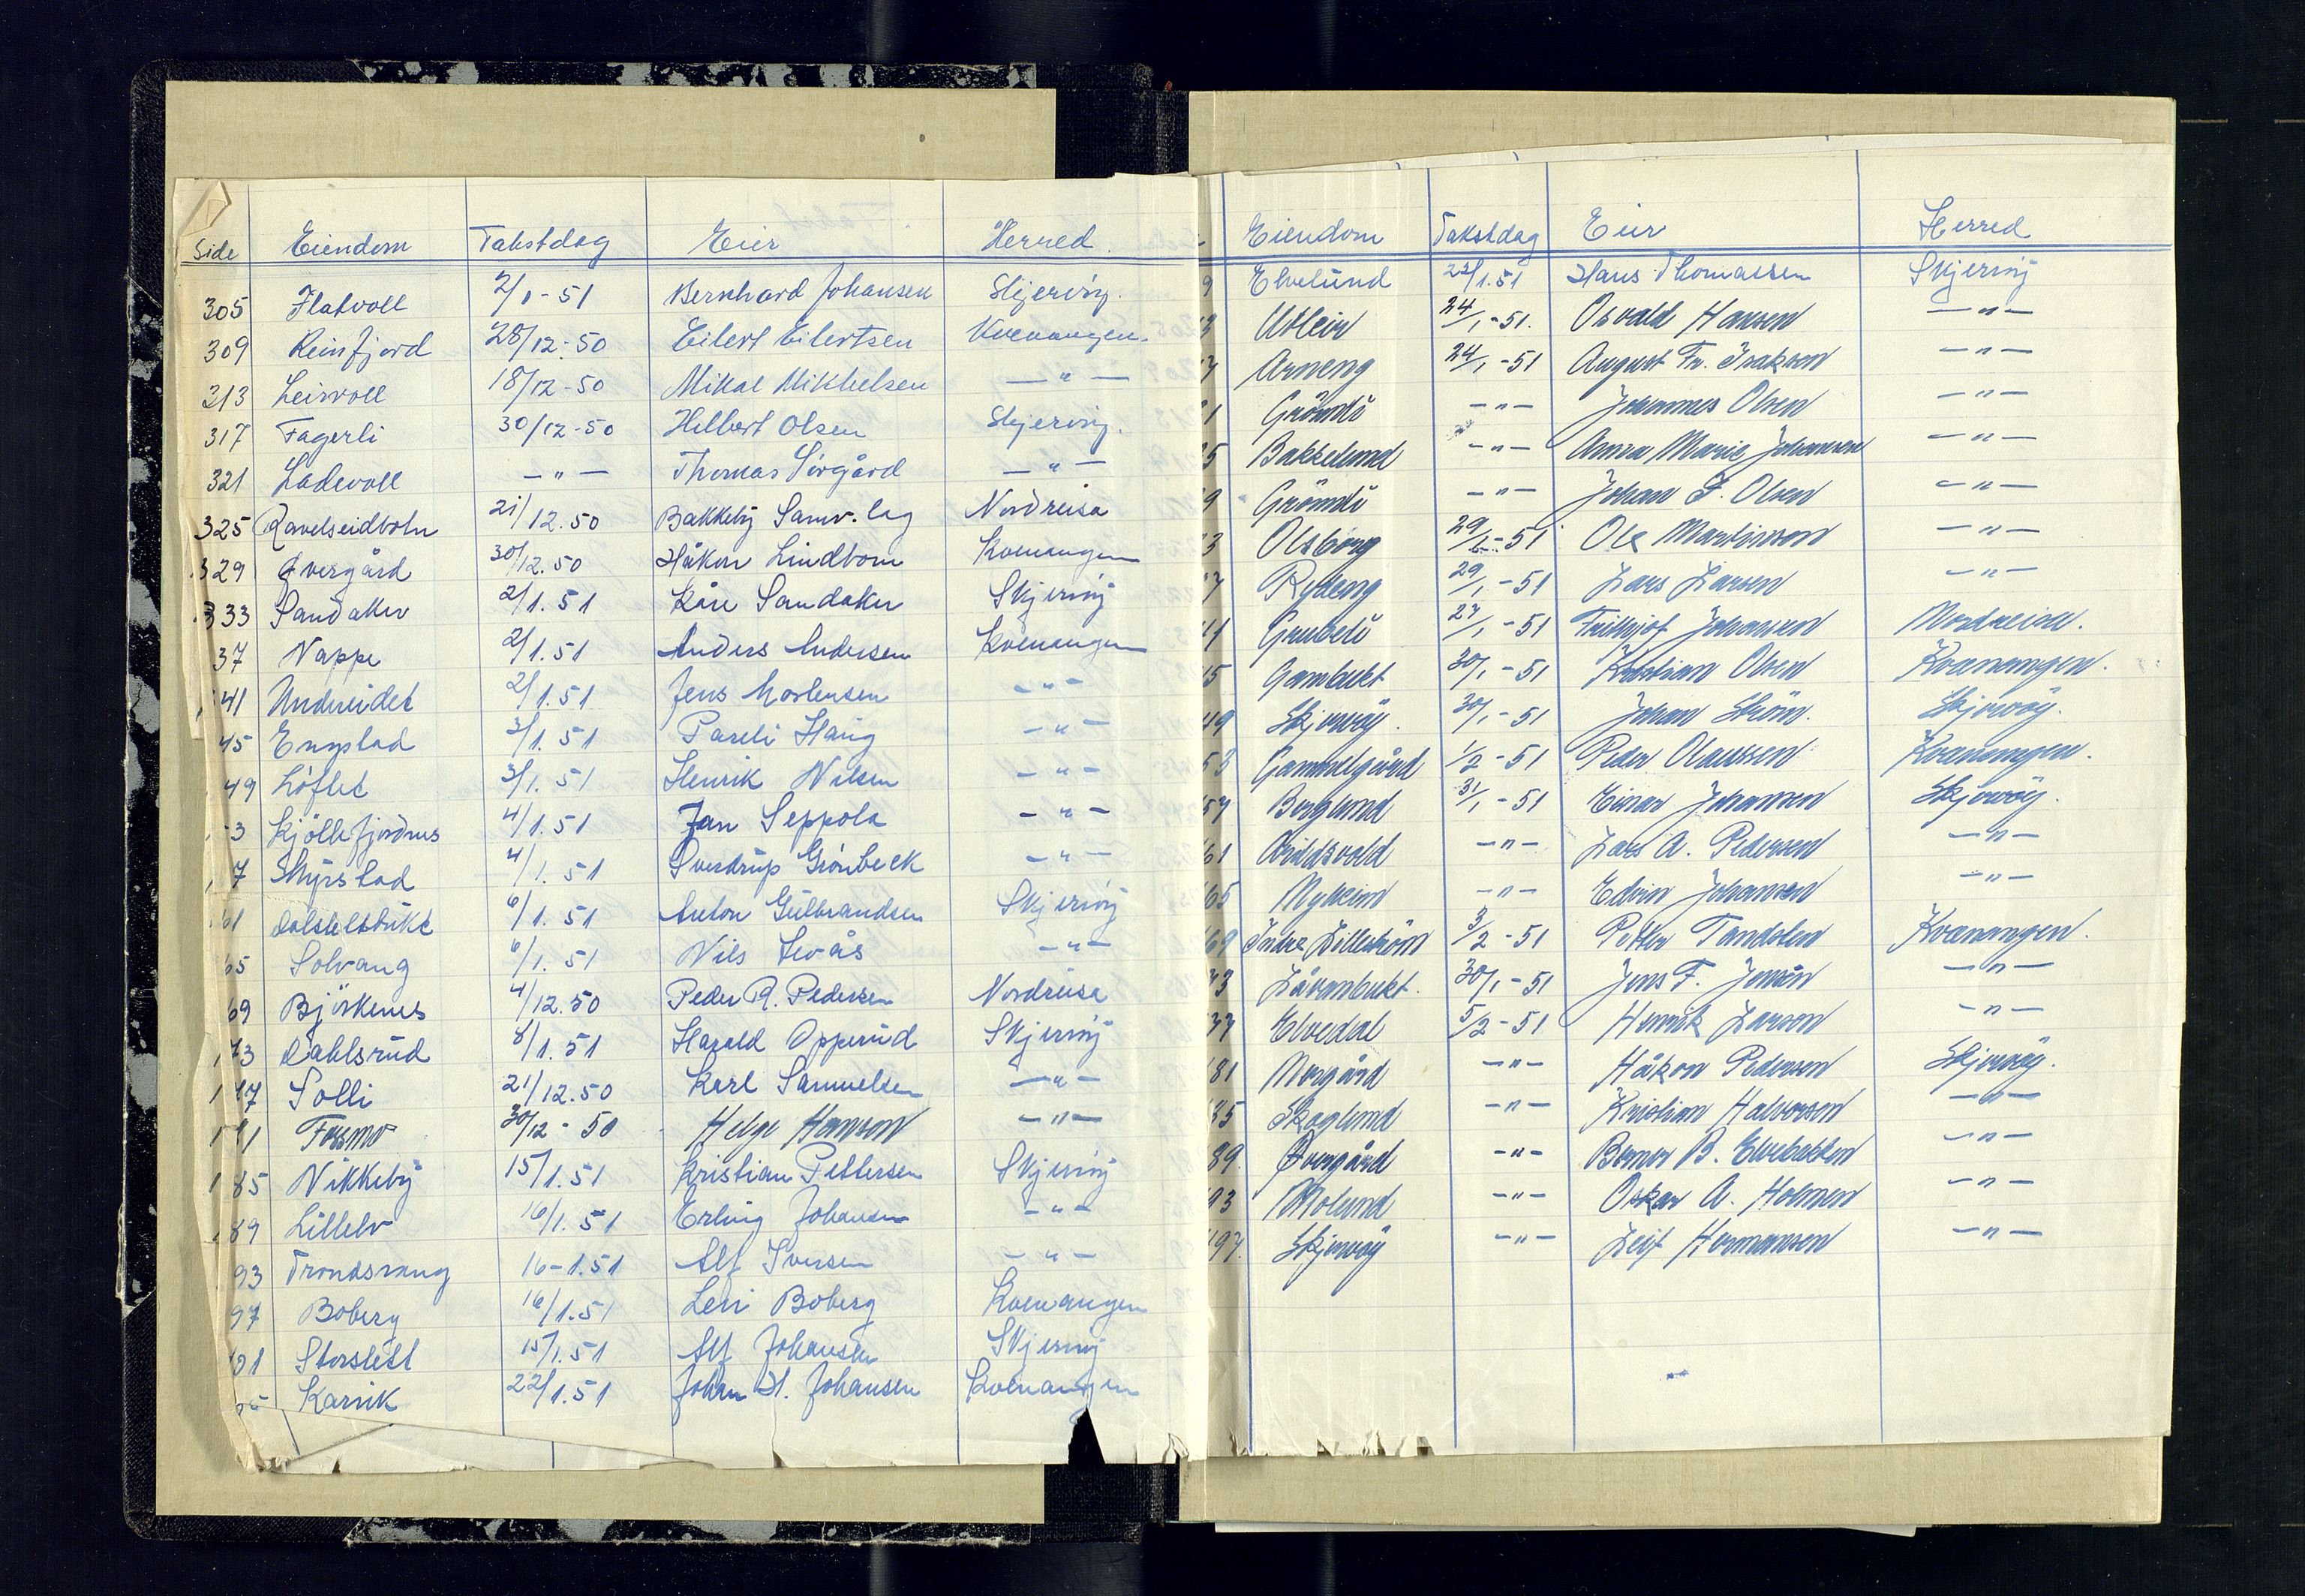 Side Eiendom Takstdag Eier Herred
305 Flatvoll 2/1-51 Bernhard Johansen Skjervøy.
309 Reinfjord 28/12-50 Eilert Eilertsen Kvænangen.
313 Leirvoll 18/12-50 Mikal Mikkelsen — " —
317 Fagerli 30/12-50 Hilbert Olsen Skjervøy.
321 Ladevoll — " — Thomas Sörgård — " —
325 Ravelseidbotn 21/12.50 Bakkeby Samv. lag Nordreisa
329 Övergård 30/12.50 Håkon Lindbom Kvenangen
333 Sandaker 2/1.51 Kåre Sandaker Skjervöy
37 Nappe 2/1.51 Anders Andersen Kvenangen
41 Undereidet 2/1.51 Jens Mortensen - " -
45 Engstad 3/1.51 Pareli Haug - " -
49 Löftet 3/1.51 Henrik Nilsen - " -
3 Kjöllefjordnes 4/1.51 Jan Seppola - " -
7 Myrstad 4/1.51 Sverdrup Grönbeck - " -
61 6/1.51 Anton Gulbrandsen Skjervöy
65 Solvang 6/1.51 Nils Levås - " -
69 Björkenes 4/12.50 Peder R. Pedersen Nordreisa
73 Dahlsrud 8/1.51 Harald Opperud Skjervöy
77 Solli 21/12.50 Karl Samuelsen — " -
1 Fossmo 30/12-50 Helge Hansen - " -
85 Nikkeby 15/1.51 Kristian Pettersen Skjervöy
89 Lillelv 16/1.51 Erling Johansen - " -
93 Trondsvang 16-1.51 Alf Iversen - " -
97 Boberg 16/1.51 Leri Boberg Kvenangen
01 Storslett 15/1.51 Alf Johansen Skjervöy
Karvik 22/1.51 Johan H. Johansen Kvenangen
Eiendom Takstdag Eier Herred
9 Elvelund 22/1.51 Hans Thomassen Skjervöy
3 Utleir 24/1-51. Osvald Hansen — " —
7 Arneng 24/1-51 August Fr. Isaksen — " —
1 Grönli - " - Johannes Olsen — " —
5 Bakkelund - " - Anna Marie Johansen — " —
9 Grönnli - " - Johan F. Olsen — " —
3 Olsborg 29/1-51 Ole Martinsen — " —
7 Ryeng 29/1-51 Lars Larsen — " —
41 Grubeli 27/1-51 Frithjof Johansen Nordreisa.
45 Gambukt 30/1-51 Kristian Olsen Kvænangen.
49 Skjervöy. 30/1-51 Johan Ström. Skjervöy.
53 Gammelgård 1/2-51 Peder Olaussen Kvænangen.
57 Berglund 31/1-51 Einar Johansen Skjervöy.
61 - " - Lars A. Pedersen — " —
65 Myheim - " - Edvin Johansen — " —
69 Indre Lilleström 3/2-51 Petter Tandslen Kvænangen.
73 Låvanbukt. 30/1-51 Jens F. Jensen — " —
77 Elvedal 5/2-51 Henrik Larsen - " -
81 Norgård - " - Håkon Pedersen Skjervöy.
85 Skoglund - " - Kristian Halvorsen - " -
89. Övergård - " - Berner B. Elvebakken - " -
93 Molund - " - Oskar A. Holmen - " -
97. Skjervöy - " - Leif Hermansen - " -